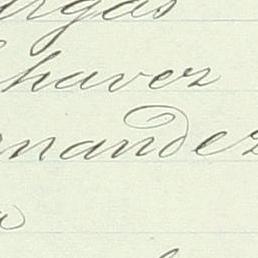 rgas
Chavez
rnandez
a